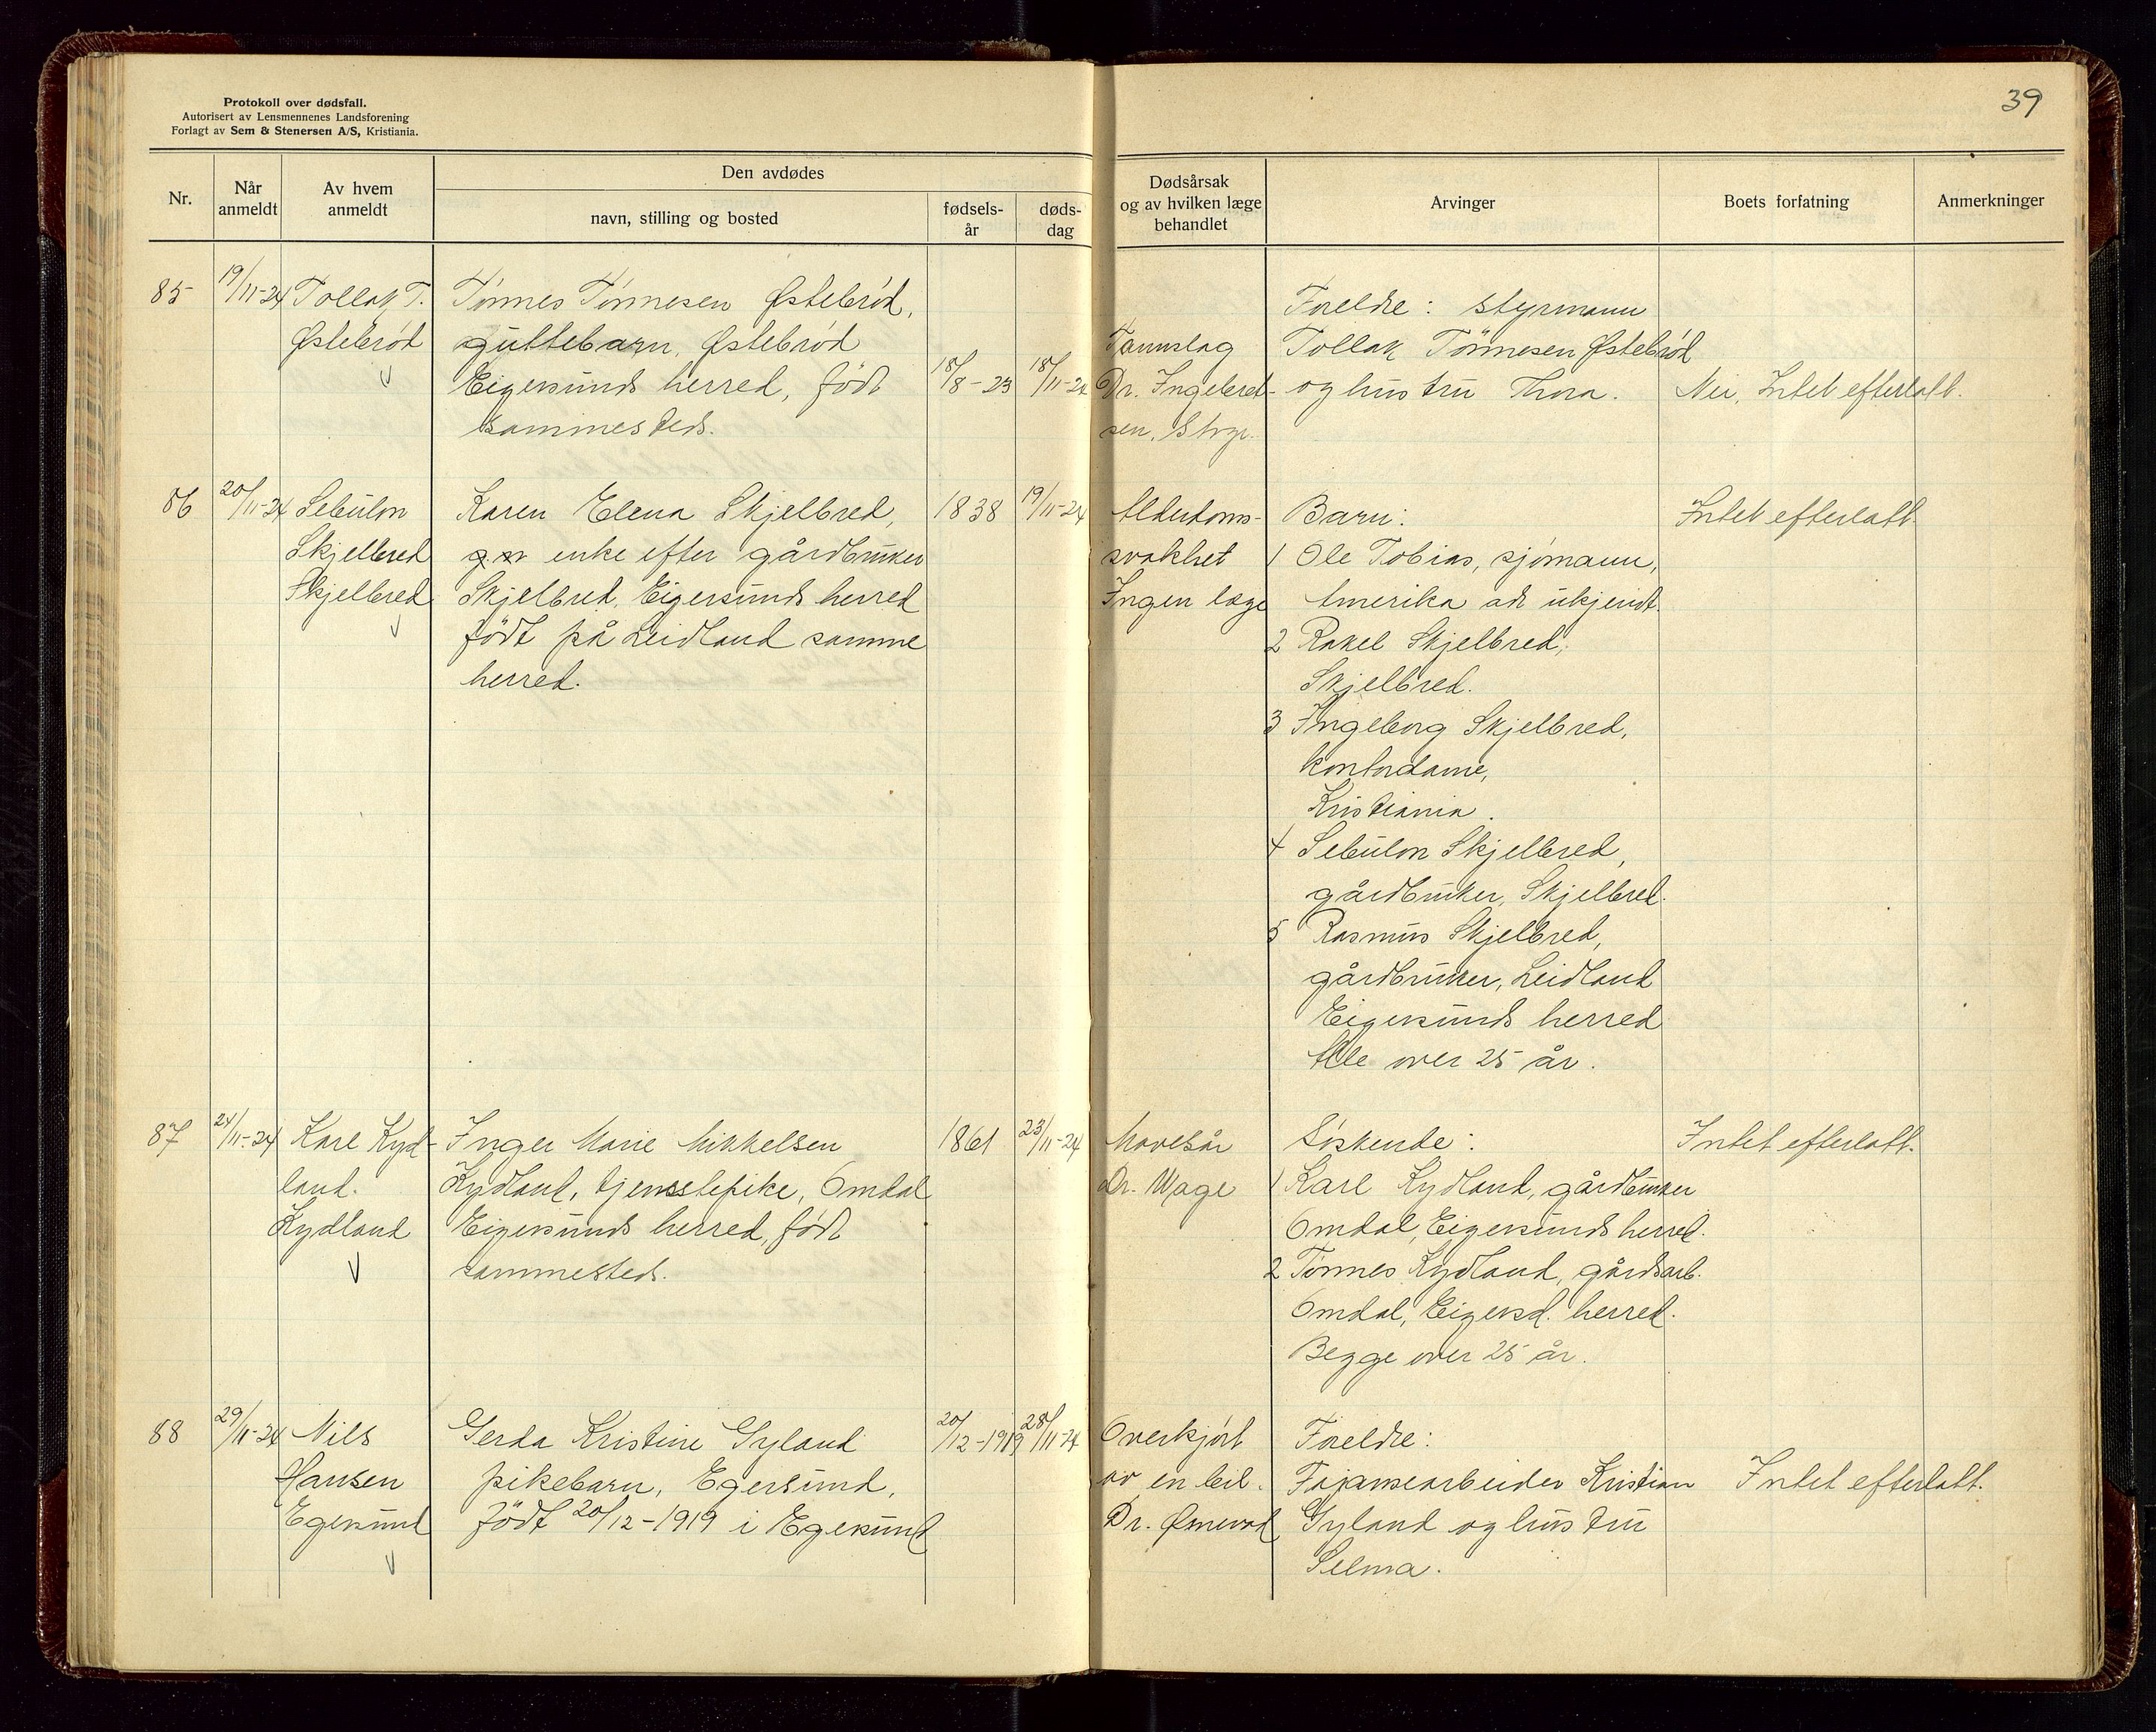 Protokoll over dødsfall.
Autorisert av Lensmennenes Landsforening
Forlagt av Sem & Stenersen A/S, Kristiania.
39
Nr.
Når anmeldt
Av hvem anmeldt
Den avdødes
navn, stilling og bosted
fødsels-år
døds-dag
Dødsårsak
og av hvilken læge
behandlet
Arvinger
Boets forfatning
Anmerkninger
85
19/11-24
Tollak T.
Østebrød
Tønnes Tønnesen Østebrød,
guttebarn, Østebrød
Eigersunds herred, født
sammesteds.
18/8-23
18/11-24
Dr. Ingebret-
sen,
Foreldre: styrmann
Tollak Tönnesen Østebrød
og hustru Thora.
Nei, Intet efterlatt.
86
20/11-24
Sebulon
Skjelbred
Skjelbred
Karen Elena Skjelbred,
enke efter gårdbruker
Skjelbred, Eigersunds herred
født på Leidland samme
herred.
1838
19/11-24
Alderdoms-
svakhet
Ingen læge
Barn:
1 Ole Tobias, sjømann,
Amerika adr ukjendt.
2 Rakel Skjelbred,
Skjelbred.
3 Ingeborg Skjelbred,
kontordame,
Kristiania.
4 Sebulon Skjelbred,
gårdbruker, Skjelbred.
5 Rasmus Skjelbred,
gårdbruker, Leidland
Eigersunds herred
Alle over 25 år.
Intet efterlatt
87
24/11-24
Karl Kyd-
land.
Kydland
Inger Marie Mikkelsen
Kydland, tjenestepike, Omdal
Eigersunds herred, født
sammesteds.
1861
23/11-24
Mavesår
Dr. Wage
Søskende:
1 Karl Kydland, gårdbruker
Omdal, Eigersunds herred.
2 Tønnes Kydland, gårdsarb.
Omdal, Eigersd. herred.
Begge over 25 år.
Intet efterlatt.
88
29/11-24
Nils
Hansen
Egersund
Gerda Kristine Gyland
pikebarn, Egersund,
født 20/12-1919 i Egersund
20/12-1919
28/11-24
Overkjørt
av en bil.
Dr.
Foreldre:
Fajansearbeider Kristian
Gyland og hustru
Selma.
Intet efterlatt.